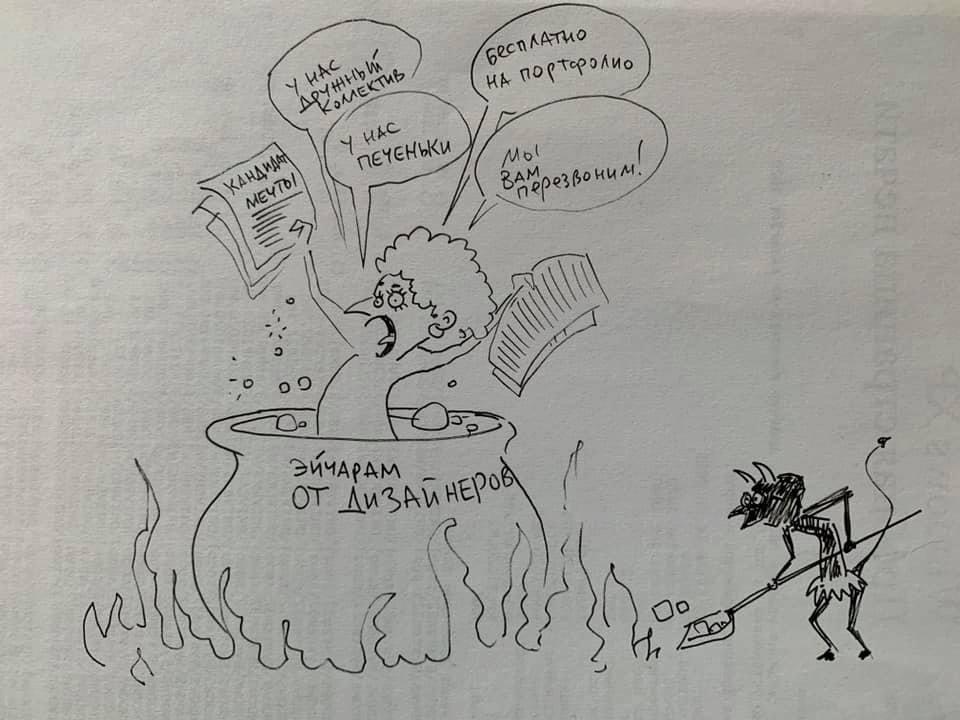 У НАС
ДРУЖНЫЙ
КОЛЛЕКТИВ
БЕСПЛАТНО
НА ПОРТФОЛИО
У НАС
ПЕЧЕНЬКИ
МЫ
ВАМ
ПЕРЕЗВОНИМ!
КАНДИДАТ
МЕЧТЫ
ЭЙЧАРАМ
ОТ ДИЗАЙНЕРОВ